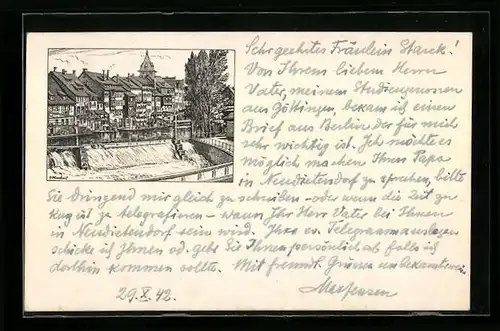 Sehr geehrtes Fräulein Starck!
Von Ihrem lieben Herrn
Vater, meinem Studiengenossen
aus Göttingen, bekam ich einen
Brief aus Berlin der für mich
sehr wichtig ist. Ich möchte es
möglich machen Ihren Papa
in Neudietendorf zu sprechen, bitte
Sie dringend mir gleich zu schreiben - oder wenn die Zeit zu
kurz ist zu telegrafieren - wann Ihr Herr Vater bei Ihnen
in Neudietendorf sein wird. Ihre ev. Telegrammauslagen
schicke ich Ihnen od. gebe Sie Ihnen persönlich ab falls ich
dorthin kommen sollte. Mit freundl. Grüssen unbekannterweise
29.X.42.